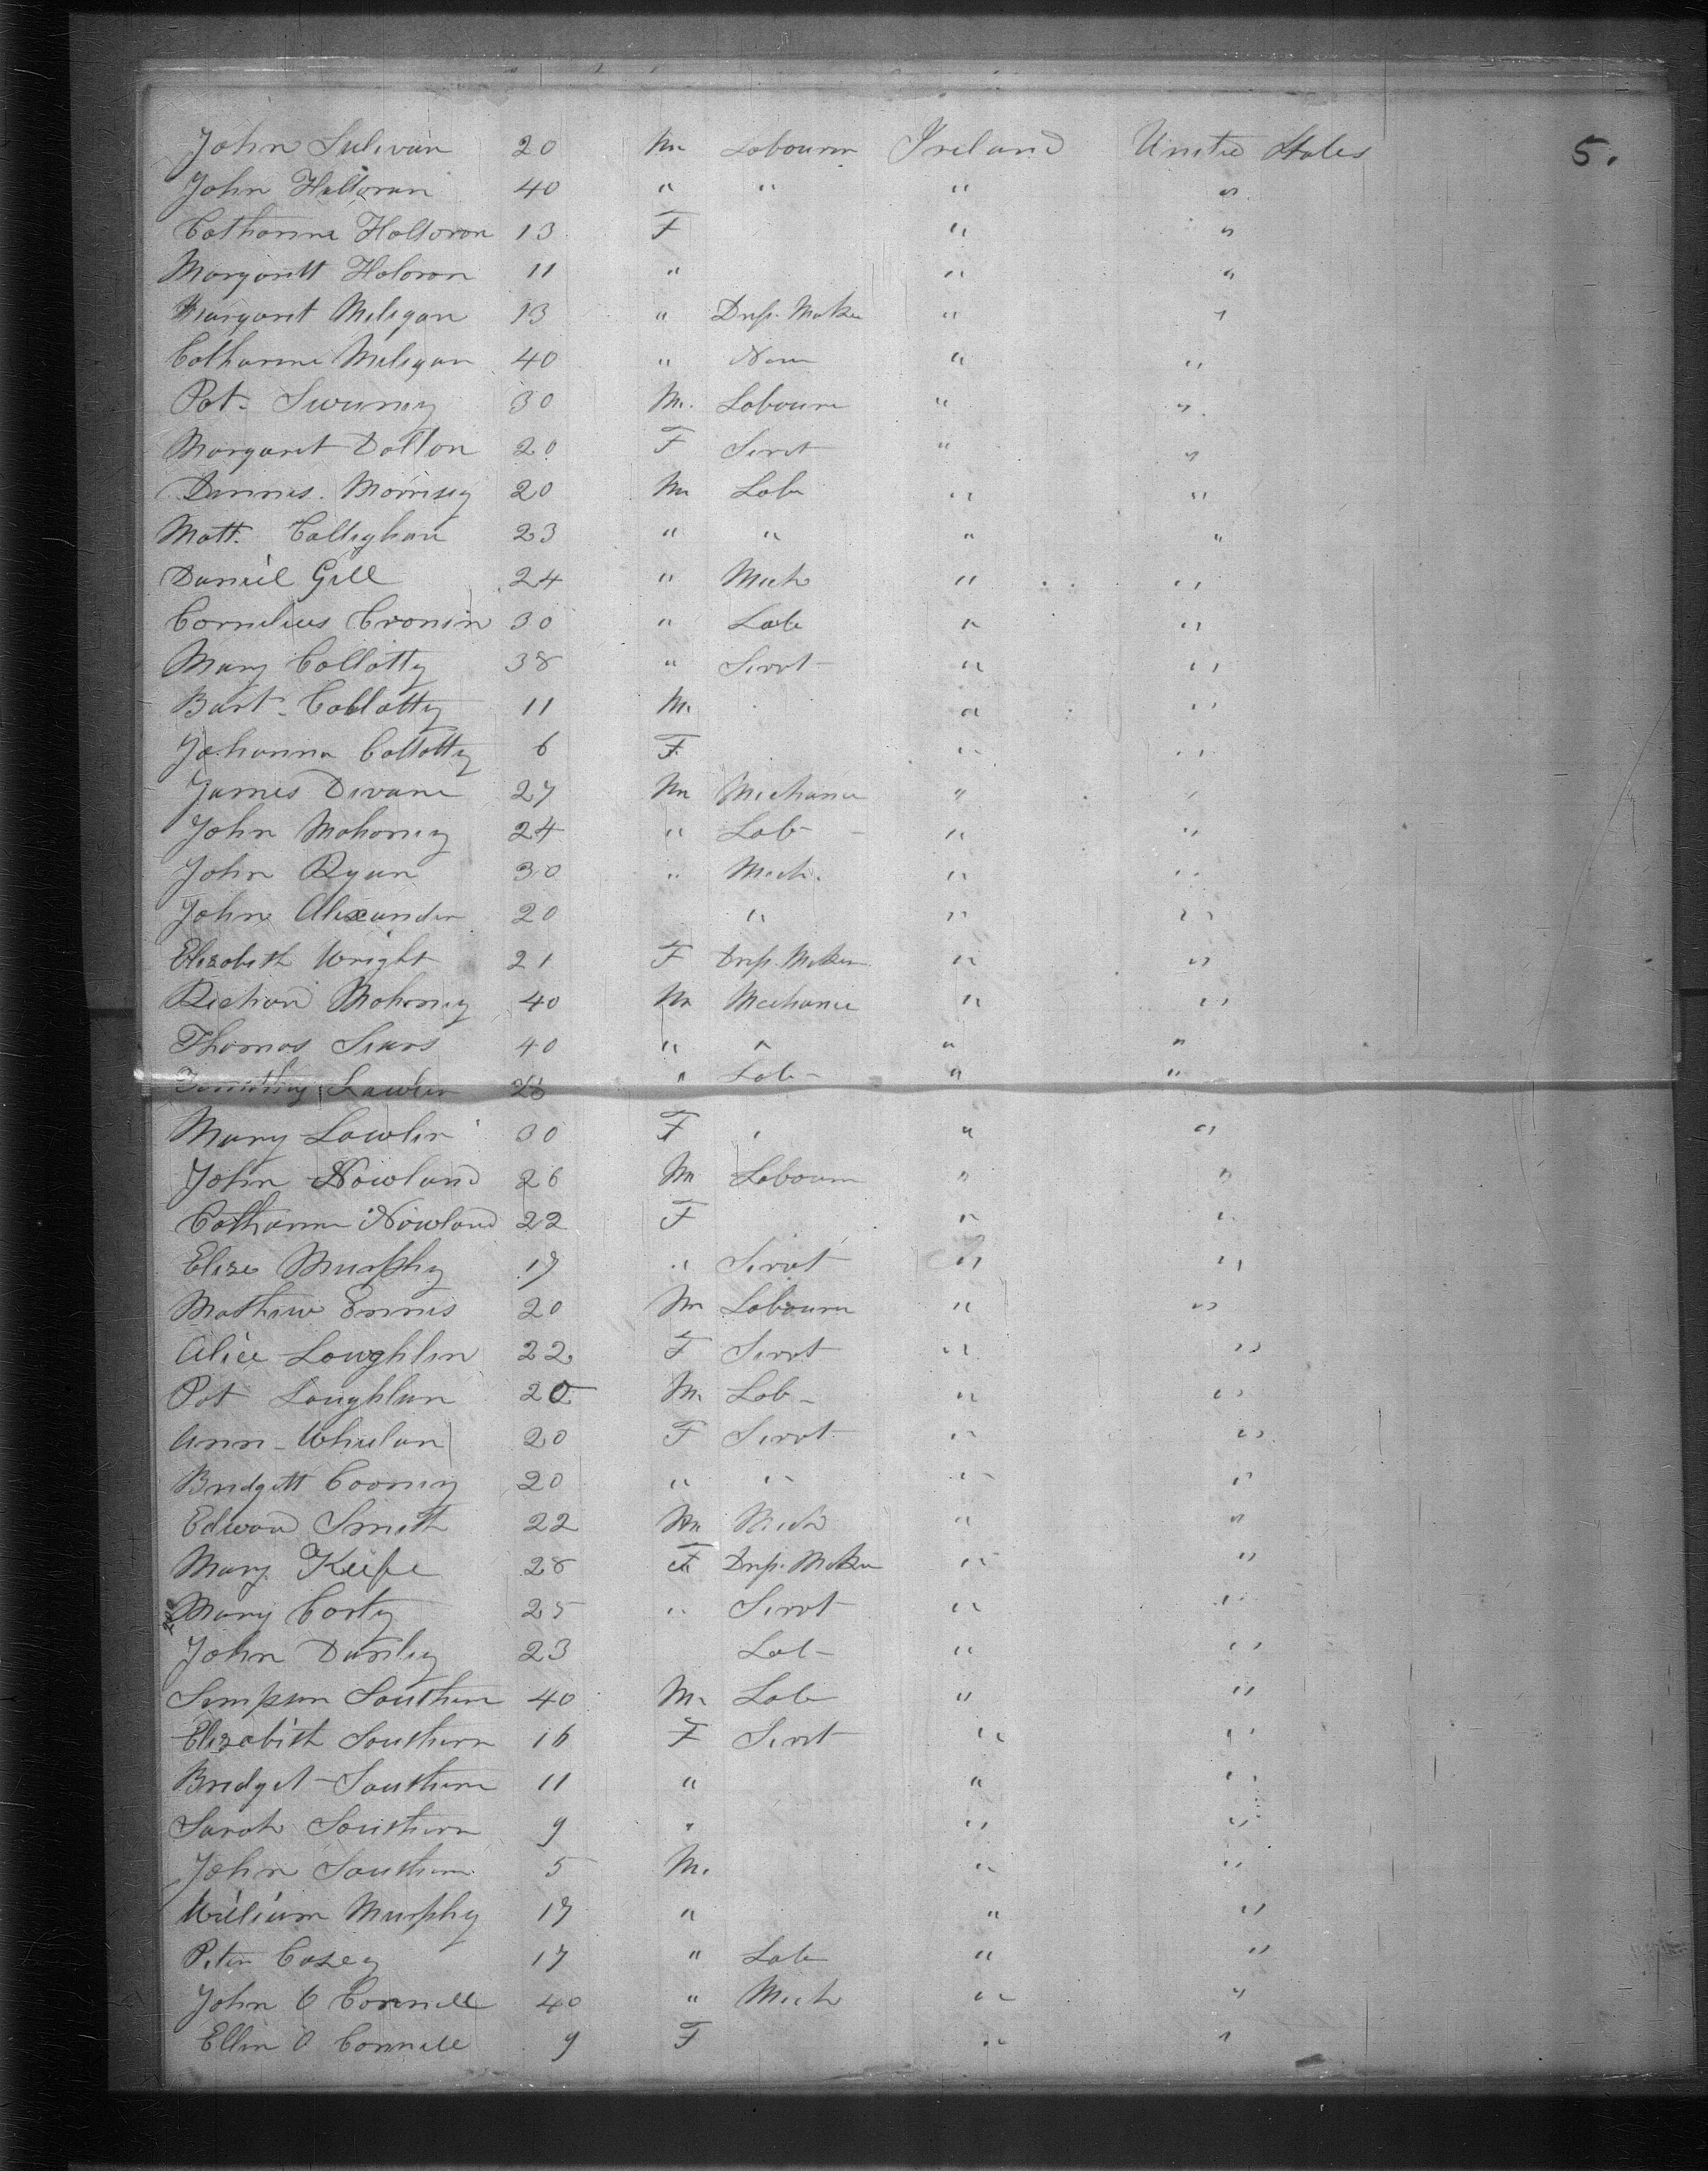 John Sulivan 20 M Labourer Ireland United States 5.
John Halloran 40 " " " "
Catharine Halloran 13 F " "
Margarett Haloran 11 " " "
Margaret Miligan 13 " Drs. Maker " "
Catharine Miligan 40 " None " "
Pat. Sweeney 30 M. Labourer " "
Margaret Dalton 20 F Servt " "
Dennis. Morrisey 20 M Lab " "
Matt. Callaghan 23 " " " "
Daniel Gill 24 " Mech " "
Cornelius Cronin 30 " Lab " "
Mary Collotty 38 " Servt " "
Bart. Collotty 11 M. " "
Johanna Collotty 6 F " "
James Devane 27 M Mechanic " "
John Mahoney 24 " Lab- " "
John Ryan 30 " Mech. " "
John Alexander 20 " " "
Elizabeth Wright 21 F Drs. Maker " "
Richard Mahoney 40 M Mechanic " "
Thomas Sears 40 " " " "
Timothy Lawler " Lab- " "
Mary Lawler 30 F " " "
John Nowland 26 M Labourer " "
Catharine Nowland 22 F " "
Eliza Murphy 17 " Servt " "
Mathew Ennis 20 M Labourer " "
Alice Loughlin 22 F Servt " "
Pat Loughlan 20 M. Lab- " "
Ann- Whelan 20 F Servt " "
Bridgett Cooney 20 " " " "
Edward Smith 22 M Mech " "
Mary Keefe 28 F Drs. Maker " "
Mary Corty 25 " Servt " "
John Danley 23 Lab- " "
Simpson Southern 40 M. Lab " "
Elizabith Southern 16 F Servt " "
Bridget Southern 11 " " "
Sarah Southern 9 " " "
John Southern 5 M. " "
William Murphy 17 " " "
Peter Casey 17 " Lab " "
John O Connell 40 " Mech " "
Ellin O Connell 9 F " "